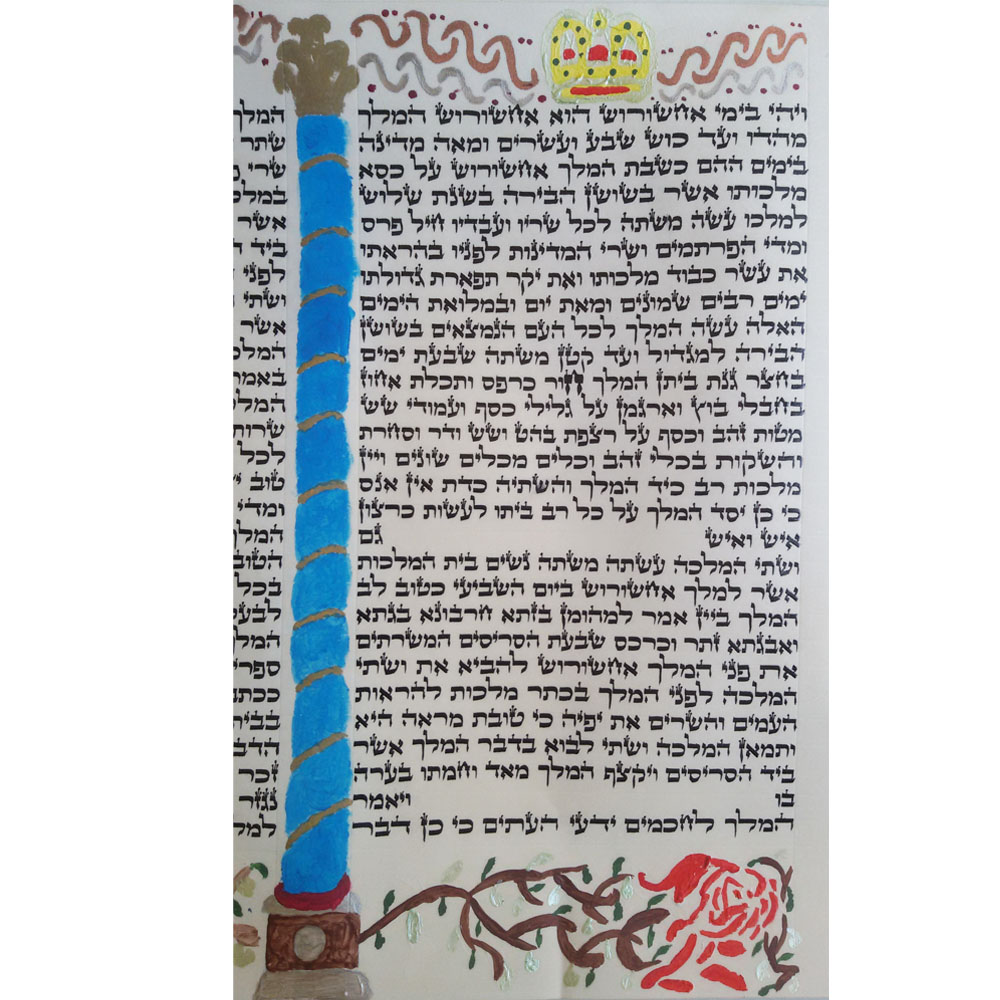 ויהי בימי אחשורוש הוא אחשורוש המלך
מהדו ועד כוש שבע ועשרים ומאה מדינה
בימים ההם כשבת המלך אחשורוש על כסא
מלכותו אשר בשושן הבירה בשנת שלוש
למלכו עשה משתה לכל שריו ועבדיו חיל פרס
ומדי הפרתמים ושרי המדינות לפניו בהראתו
את עשר כבוד מלכותו ואת יקר תפארת גדולתו
ימים רבים שמונים ומאת יום ובמלואת הימים
האלה עשה המלך לכל העם הנמצאים בשושן
הבירה למגדול ועד קטן משתה שבעת ימים
בחצר גנת ביתן המלך חור כרפס ותכלת אחוז
בחבלי בוץ וארגמן על גלילי כסף ועמודי שש
מטות זהב וכסף על רצפת בהט ושש ודר וסחרת
והשקות בכלי זהב וכלים מכלים שונים ויין
מלכות רב כיד המלך והשתיה כדת אין אנס
כי כן יסד המלך על כל רב ביתו לעשות כרצון
איש ואיש גם
ושתי המלכה עשתה משתה נשים בית המלכות
אשר למלך אחשורוש ביום השביעי כטוב לב
המלך ביין אמר למהומן בזתא חרבונא בגתא
ואבגתא זתר וכרכס שבעת הסריסים המשרתים
את פני המלך אחשורוש להביא את ושתי
המלכה לפני המלך בכתר מלכות להראות
העמים והשרים את יפיה כי טובת מראה היא
ותמאן המלכה ושתי לבוא בדבר המלך אשר
ביד הסריסים ויקצף המלך מאד וחמתו בערה
בו ויאמר
המלך לחכמים ידעי העתים כי כן דבר
המלך
שתר
שרי
אשר
ביד
לפני
ושתי
אשר
לכל
טוב
ומדי
המלך
בכל
זכר
נגזר